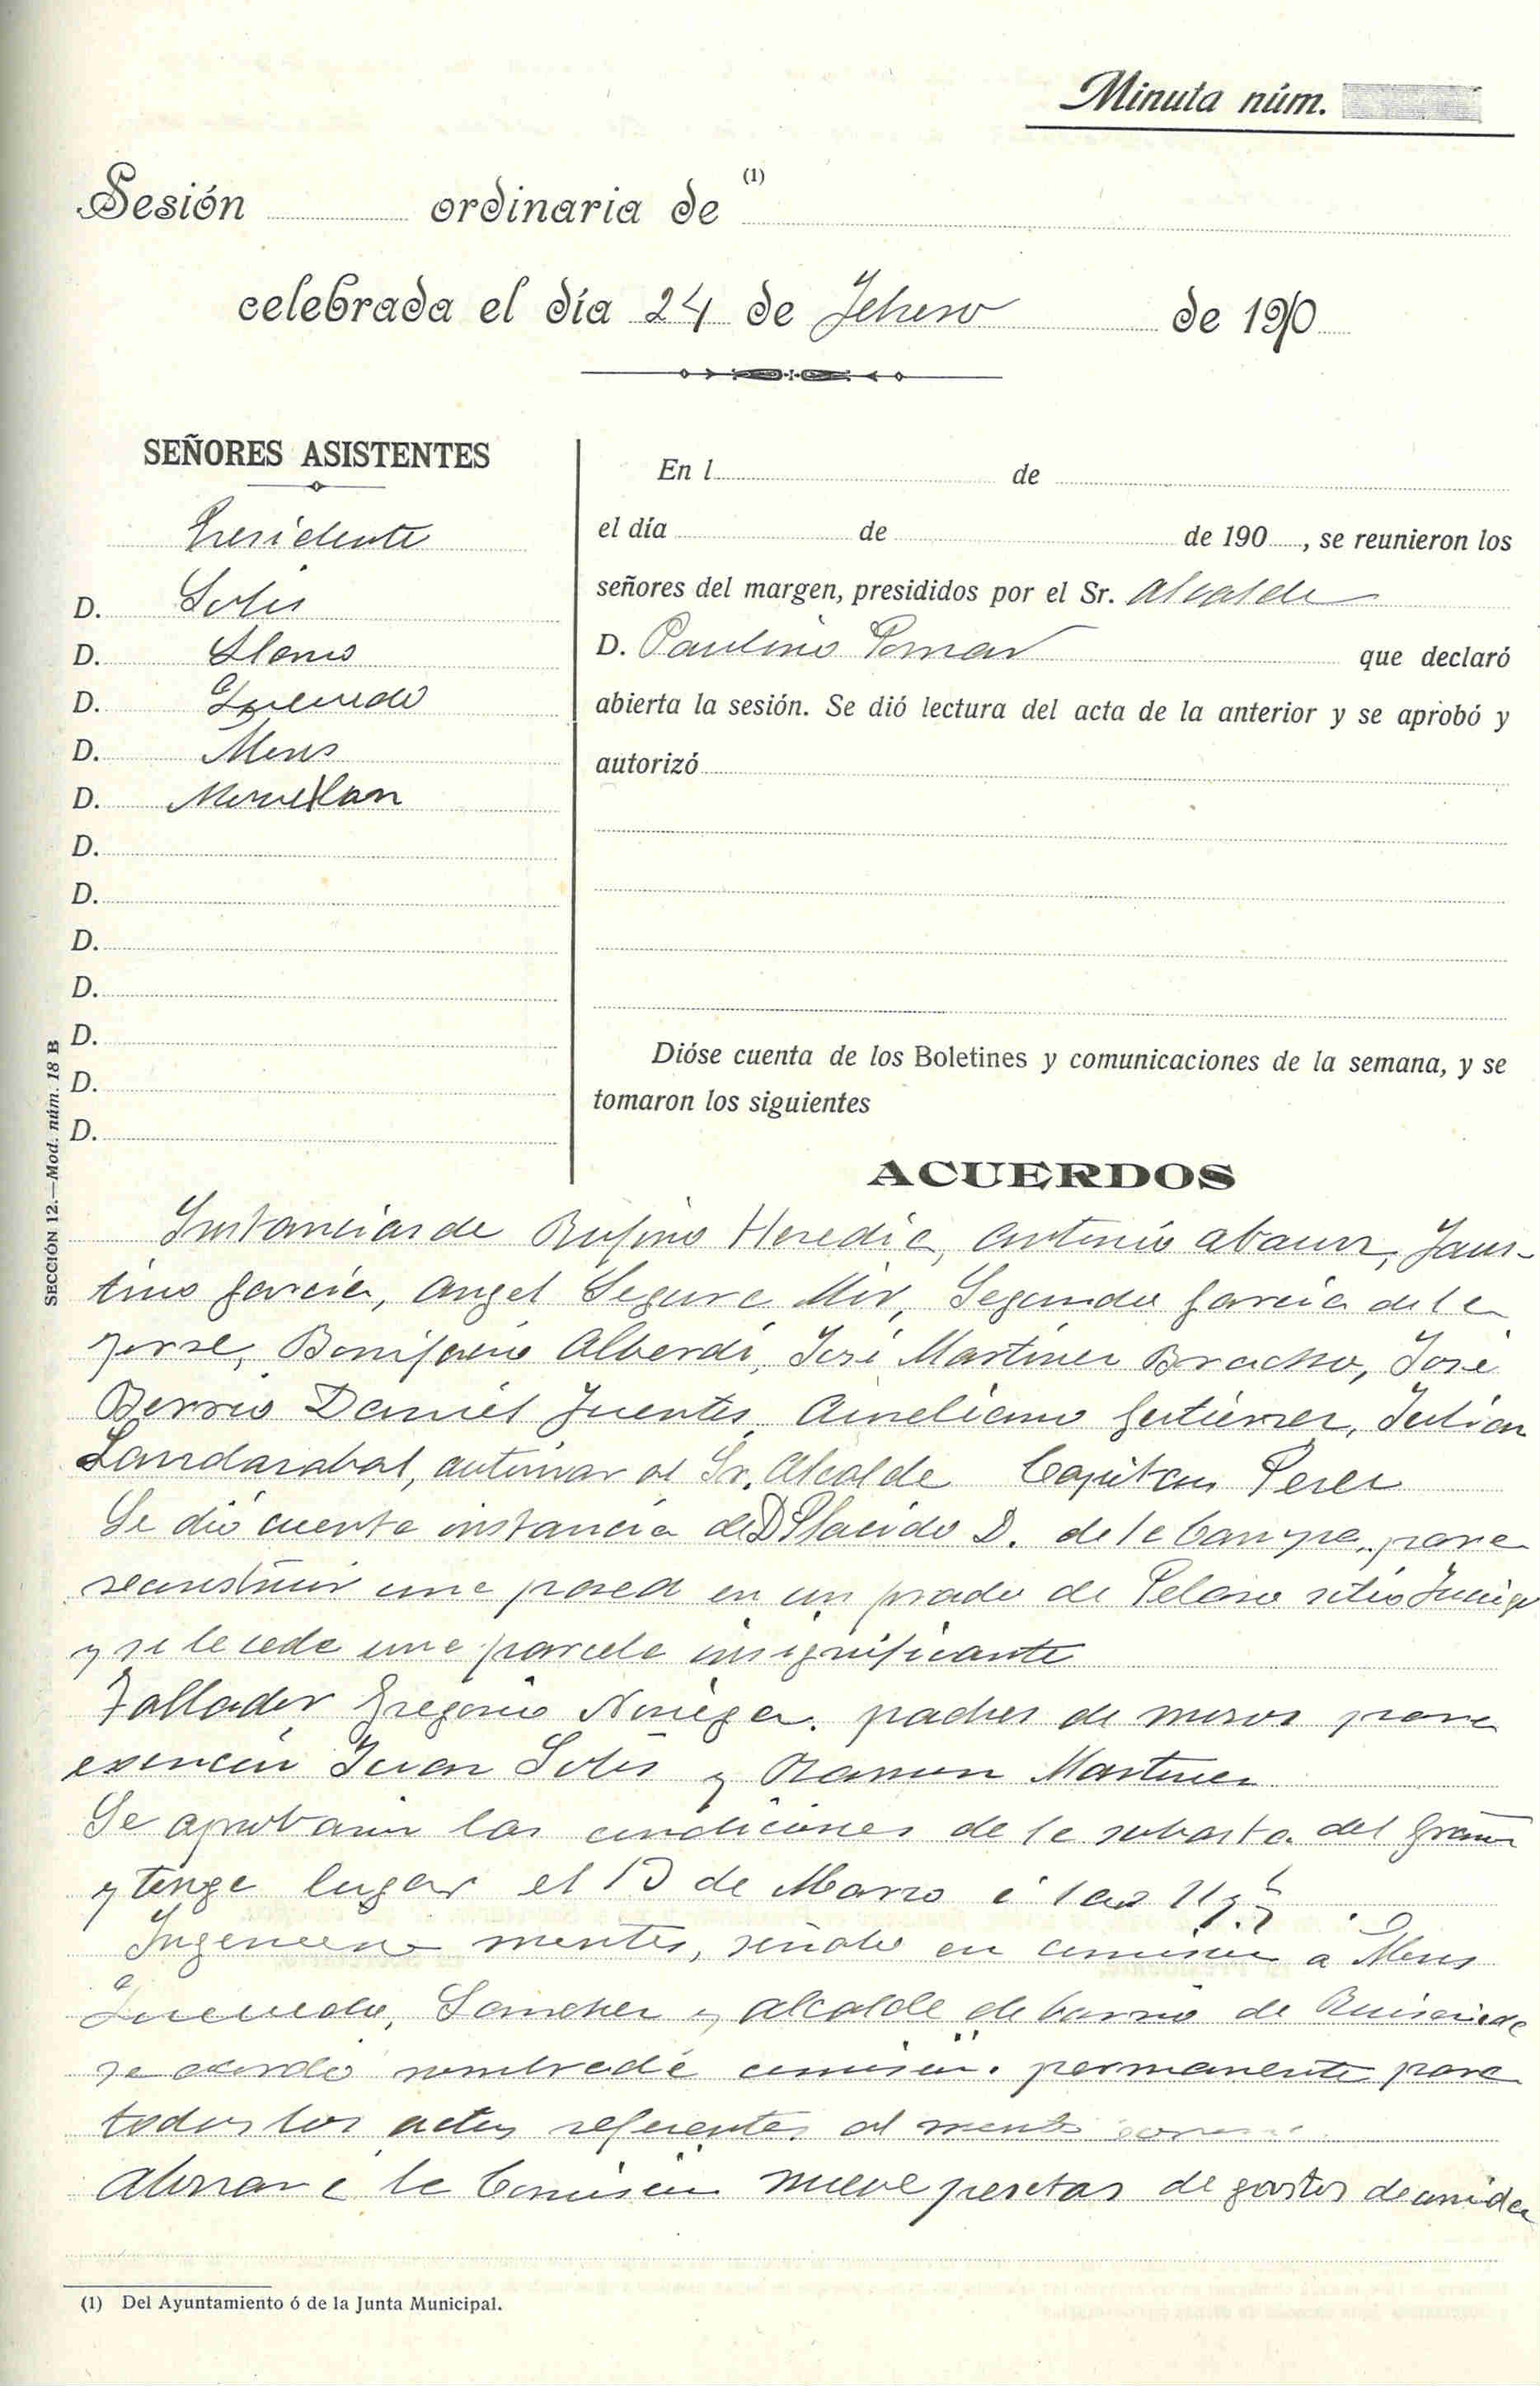 Minuta núm.
Sesión ordinaria de (1)
celebrada el día 24 de Febrero de 1910
SEÑORES ASISTENTES
Presidente
D. Solis
D. Llanos
D. Quevedo
D. Mons
D.
D.
D.
D.
D.
D.
D.
D.
En l de
el día de de 190 , se reunieron los
señores del margen, presididos por el Sr. Alcalde
D. Paulino Pomar que declaró
abierta la sesión. Se dió lectura del acta de la anterior y se aprobó y
autorizó
Dióse cuenta de los Boletines y comunicaciones de la semana, y se
tomaron los siguientes
ACUERDOS
Instancias de Rufino Heredia, Antonio Abaunz, Faus-
tino Garcia, Angel Segura Mir, Segundo Garcia de la
Bonifacio Alberdi, José Martinez Bracho, José
Berrio Daniel Fuentes, Aureliano Gutierrez, Julian
Landarabal, autorizar al Sr. Alcalde Capitan Perez
Se dió cuenta instancia de D Placido D. de la Campa, para
reconstruir una pared en un prado de Pelaro sitio
y se le cede una parcela insignificante
Tallador Gregorio Noriega. padres de mozos para
exención Juan Solis y Ramon Martinez
Se aprobaron las condiciones de la subasta del
y tenga lugar el 13 de Marzo á las 11 y
Ingeniero montes, señalo en comision a Mons
Quevedo, Sanchez y alcalde de barrio de
se acordó nombrada comision permanente para
todos los actos referentes al monte
Abonar á la Comision nueve pesetas de gastos de comida
(1) Del Ayuntamiento ó de la Junta Municipal.
SECCIÓN 12.—Mod. núm. 18 B